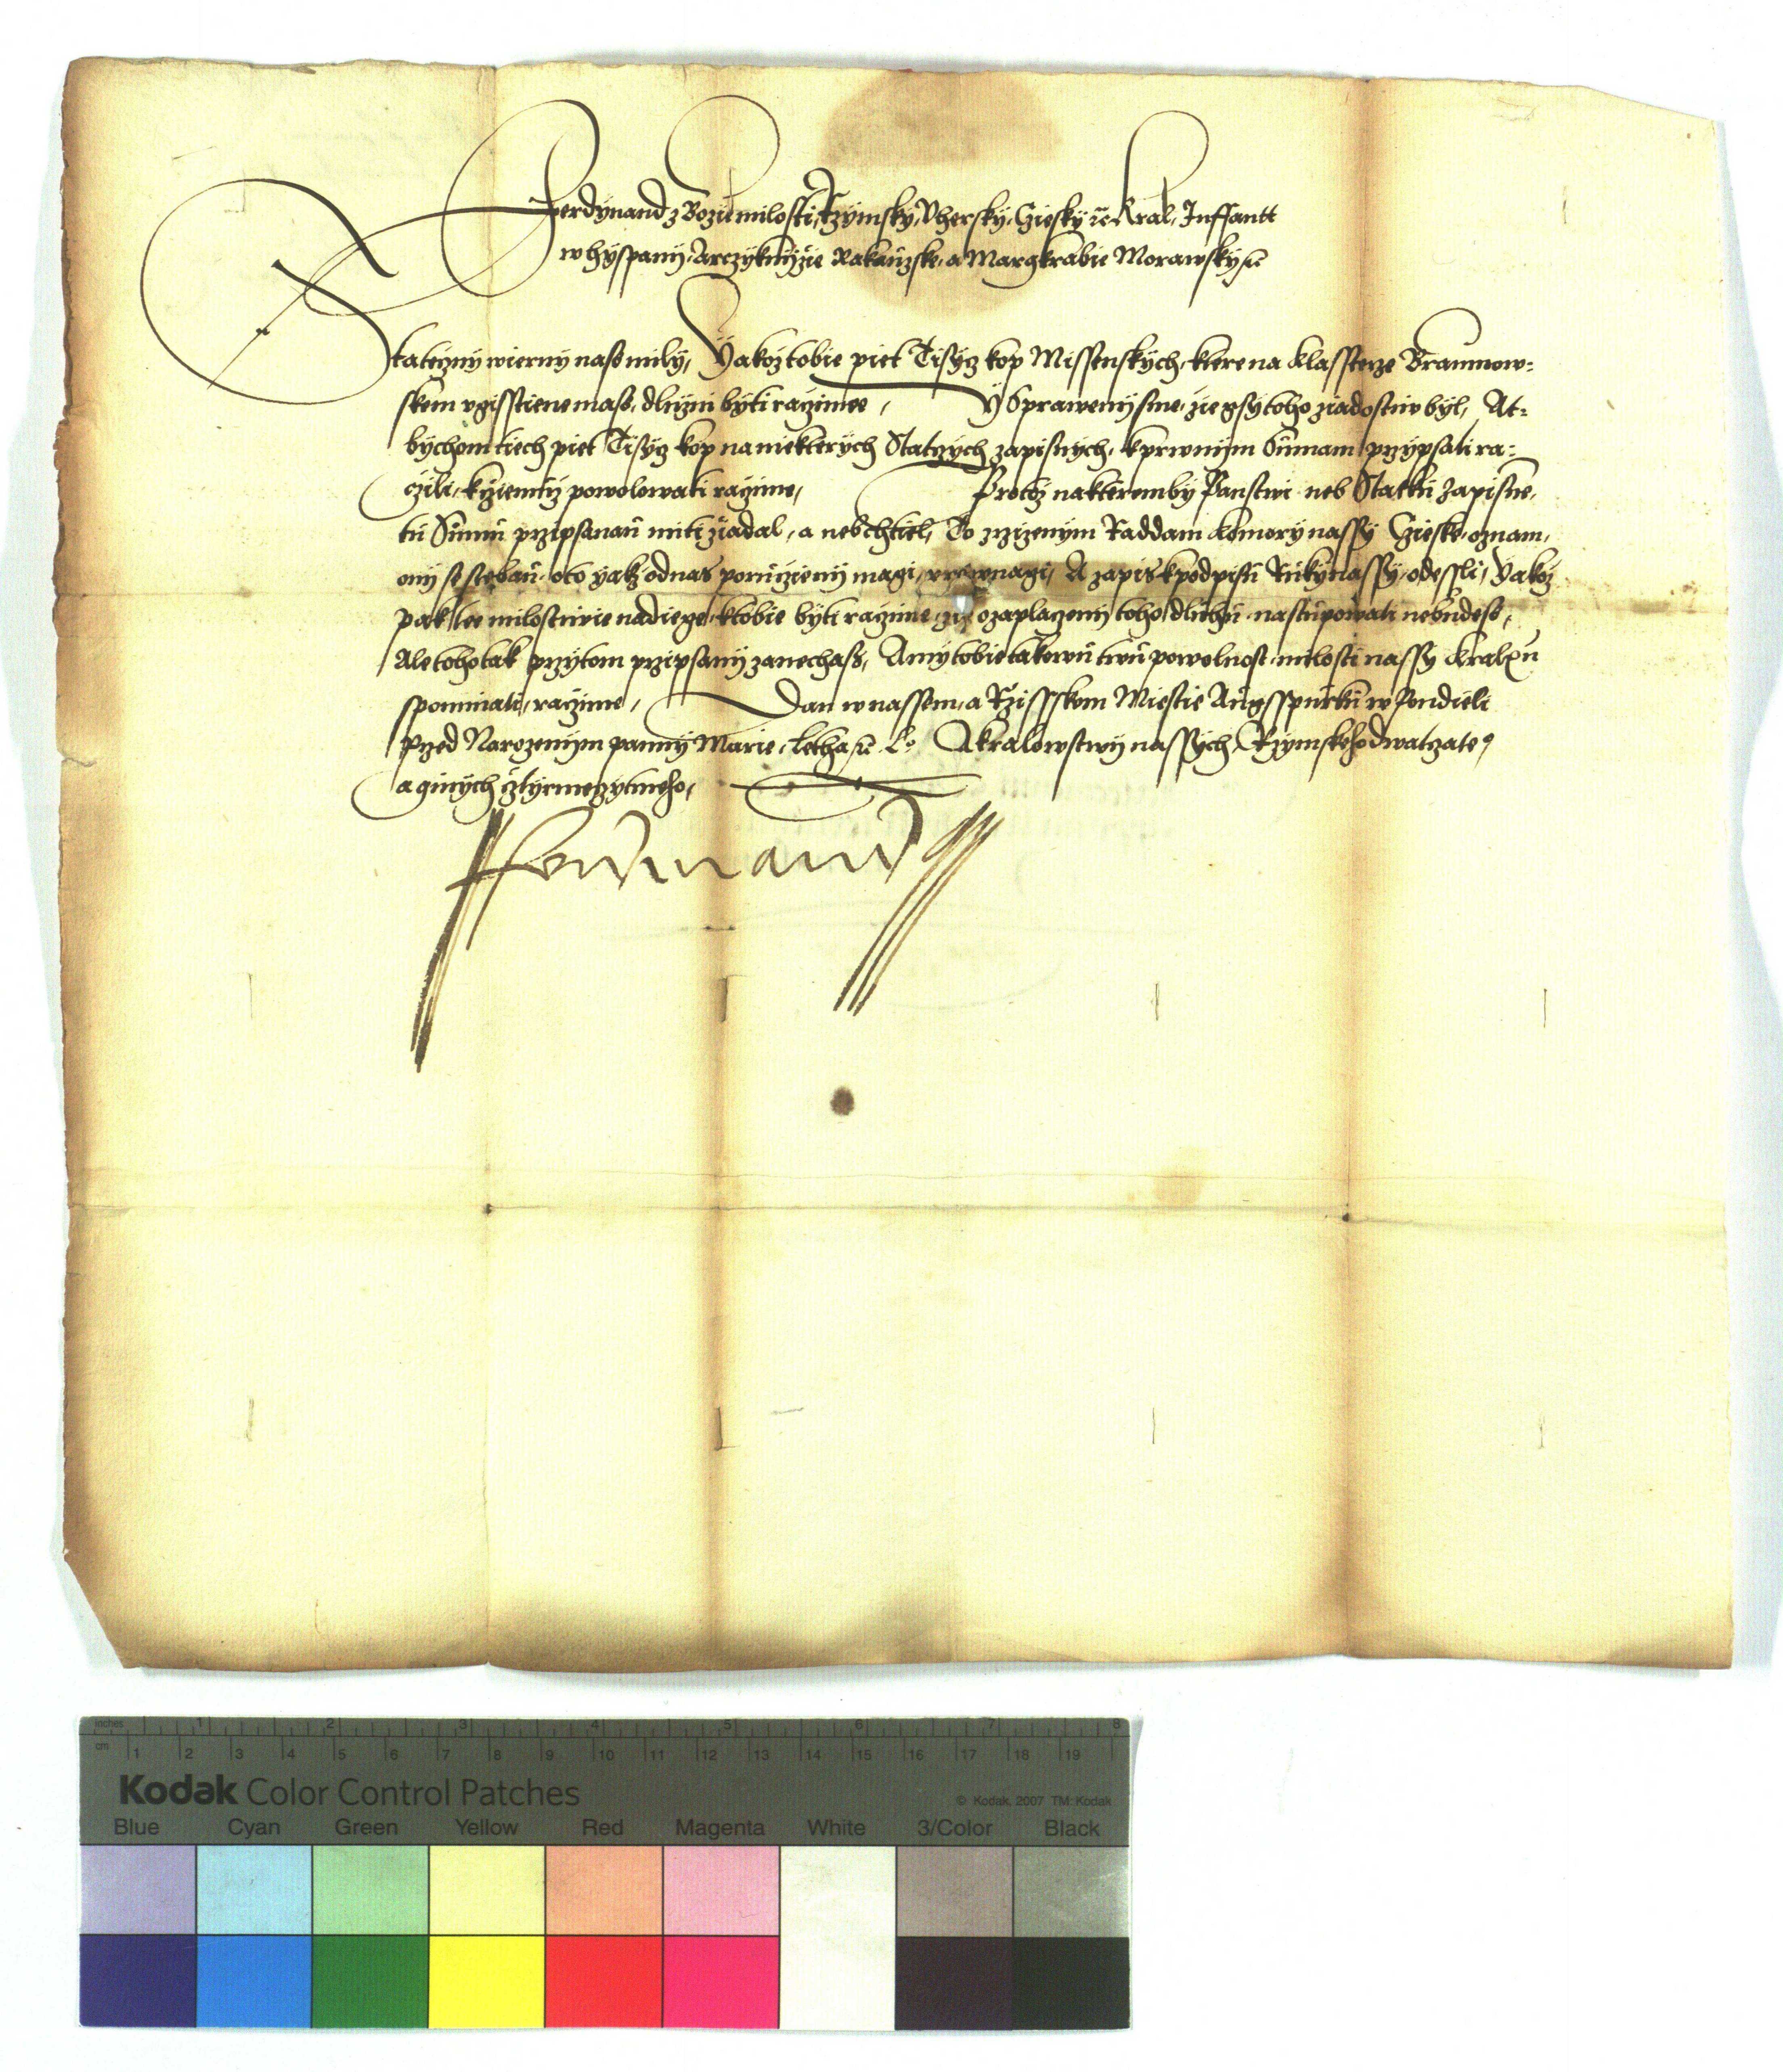 Ferdynand z Bozie milosti, Rzymsky, Vhersky, Cziesky ꝛc̃ Kral, Inffantt
w hyspany, Arczyknyzie Rakauzske, a Margkrabie Morawsky ꝛc̃
Stateczny wierny nass mily, Yakoz tobie piet Tisycz kop Missenskych, ktere na klassterze Braunow-
skem vgisstiene mass, dluzni byti raczimee, Y Sprawenysme, zie gsy toho ziadostiw byl, At-
bychom tiech piet Tisycz kop na niekterych Statczych zapisnych, k prwnijm Sumam przypsati ra-
czili, k cziemuz powolowati raczime, Protoz na kterem by Panstwi neb Statku Zapisne,
tu Sumu przipsanau miti ziadal, a neb chtiel, To zrzizenym Raddam komory nassy Czieske, oznam,
ony se s tebau, o to yakz od nas poruczieny magi, vrownagi, A zapis k podpisu Ruky nassy, odessli, Yakoz
pak tee milostiwie nadiege, k tobie byti raczime, zie o zaplaczeny toho dluhu, nastupowati nebudess,
Ale toho tak przytom przipsany zanechass, A my tobie takowu twu powolnost, milosti nassy kralxu
spominati, raczime, Dan w nassem, a Rzissskem Miestie Augsspurku w Pondieli
Przed Narozenijm panny Marie, Letha ꝛc̃ L° A kralowstwij nassych, Rzymskeho dwatczate°
a ginych cztyrmezytmeho,
Ferdinand
inches 1 2 3 4 5 6 7 8
cm 1 2 3 4 5 6 7 8 9 10 11 12 13 14 15 16 17 18 19
Kodak Color Control Patches
© Kodak, 2007 TM: Kodak
Blue Cyan Green Yellow Red Magenta White 3/Color Black